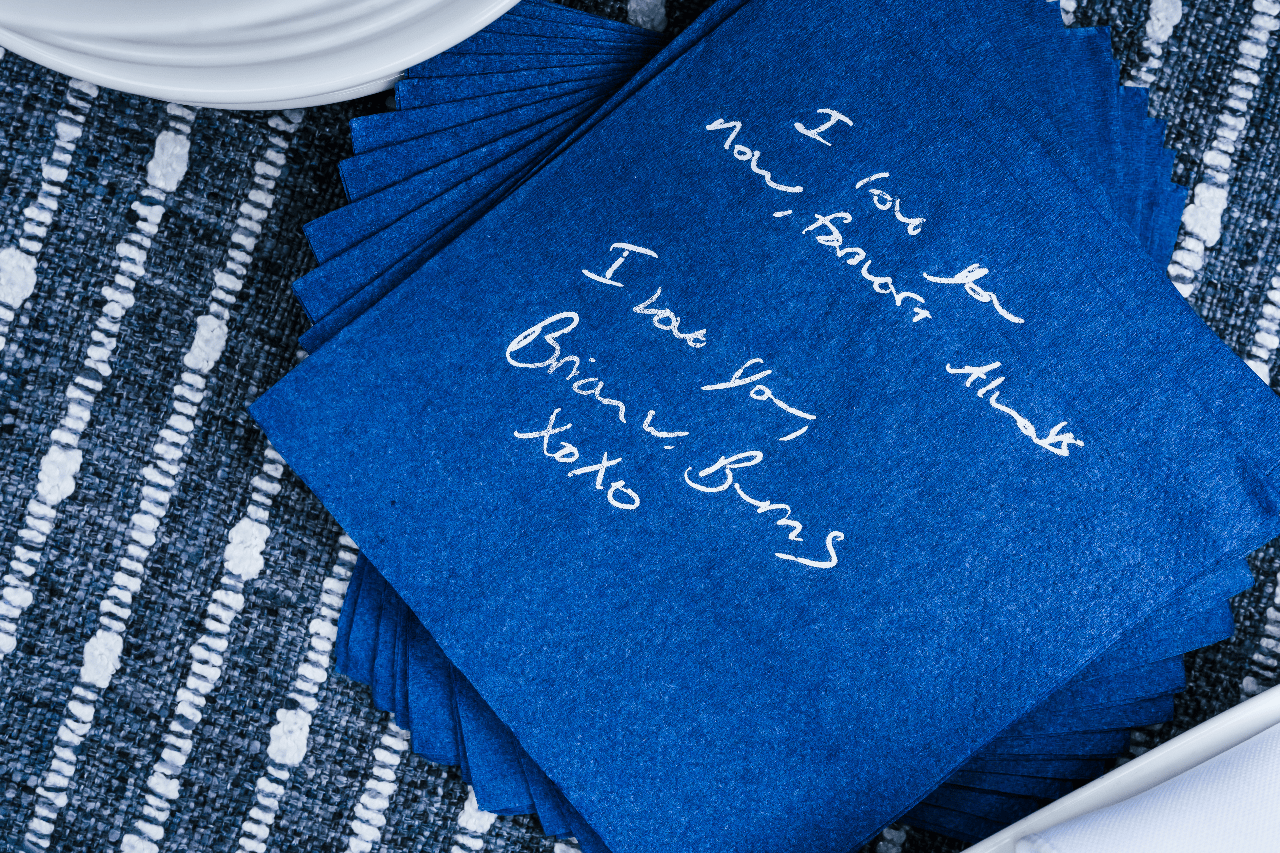 I love you
now, forever, Always
I love you,
Brian W. Burns
XOXO